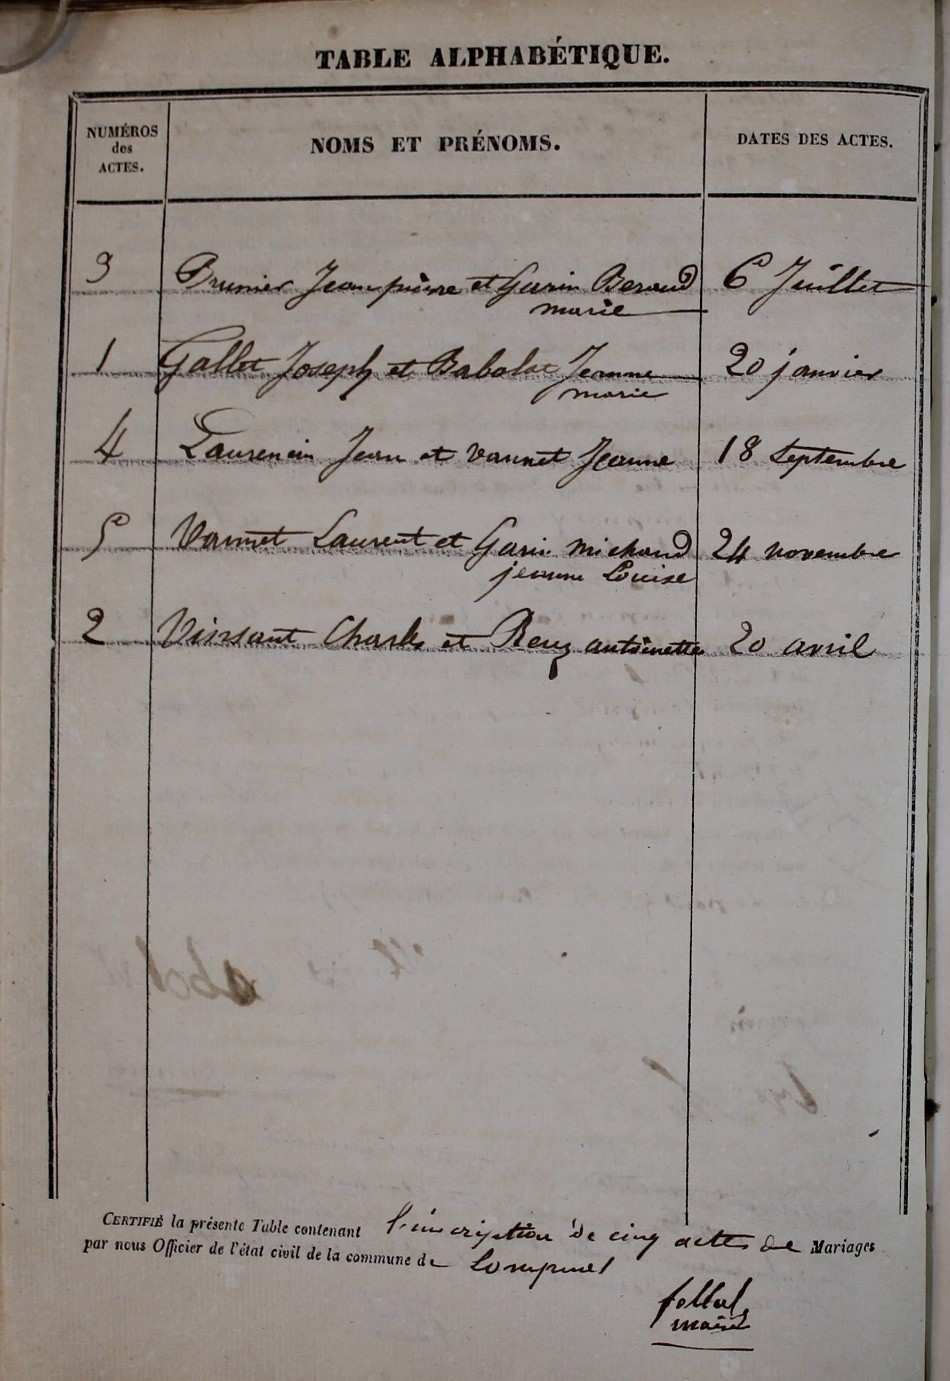 TABLE ALPHABÉTIQUE.
NUMÉROS des ACTES. NOMS ET PRÉNOMS. DATES DES ACTES.
3 Brunier Jean pierre et Garin Beraud 6 Juillet
marie
1 Gallet Joseph et Babolat Jeanne 20 janvier
marie
4 Laurencin Jean et vannet Jeanne 18 Septembre
5 Vannet Laurent et Garin michaud 24 novembre
jeanne Louise
2 Vinsant Charles et Reug antoinette 20 avril
CERTIFIÉ la présente Table contenant l'inscription De cinq actes De Mariages
par nous Officier de l'état civil de la commune de Lompnes
maire